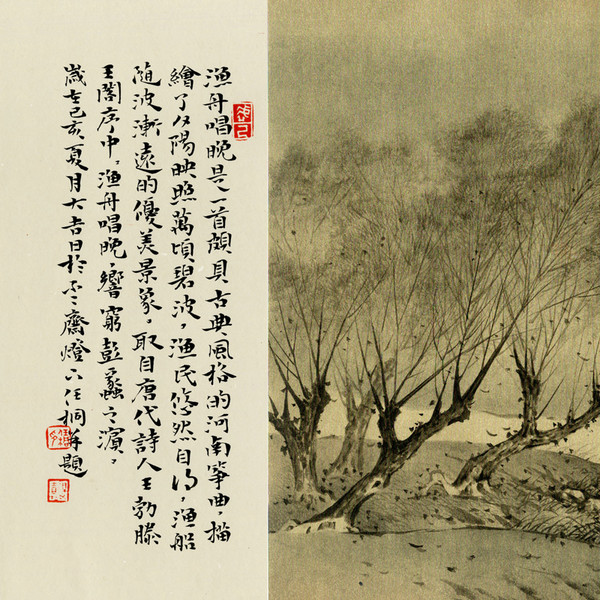 漁舟唱晚是一首頗具古典風格的河南箏曲，描
繪了夕陽映照萬頃碧波，漁民悠然自得，漁船
隨波漸遠的優美景象。取自唐代詩人王勃滕
王閣序中，漁舟唱晚，響窮彭蠡之濱。
歲在己亥夏月大吉日於齋燈下任桐題